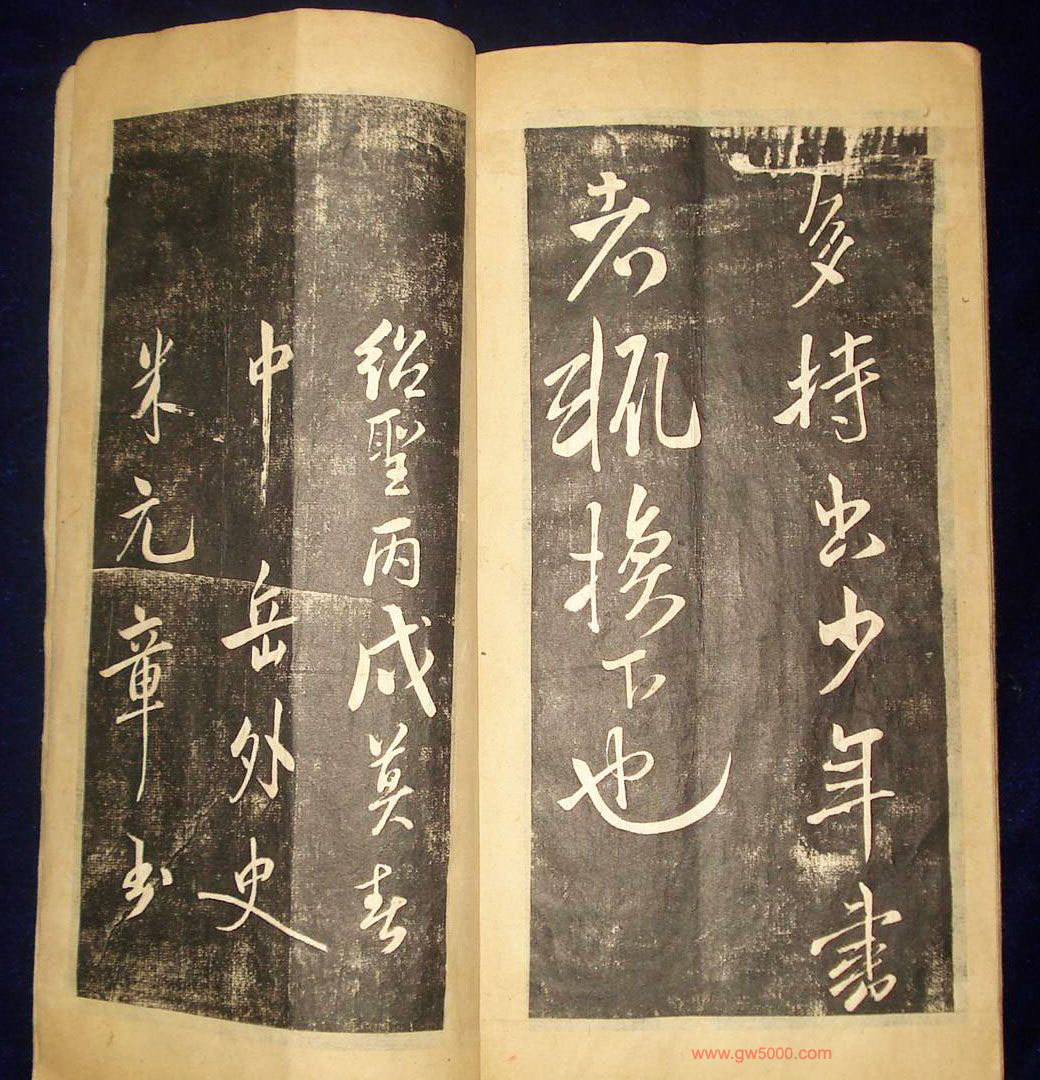 多持出少年書
者輒換下也
紹聖丙戌莫春
中岳外史
米元章书
www.gw5000.com